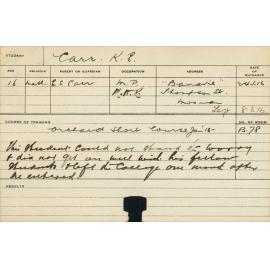 STUDENT Carr. K. E.
AGE RELIGION PARENT OR GUARDIAN OCCUPATION ADDRESS DATE OF ENTRANCE
16 Meth E S Carr M.P. "Banavie"
Thompson St.
Mosman
Left 8.2.16
COURSE OF TRAINING NO. OF ROOM
Orchard Short Course Jan 16. B.78
This Student could not stand the worry
& did not get on well with his fellow
Students & left the College one month after
he entered.
RESULTS